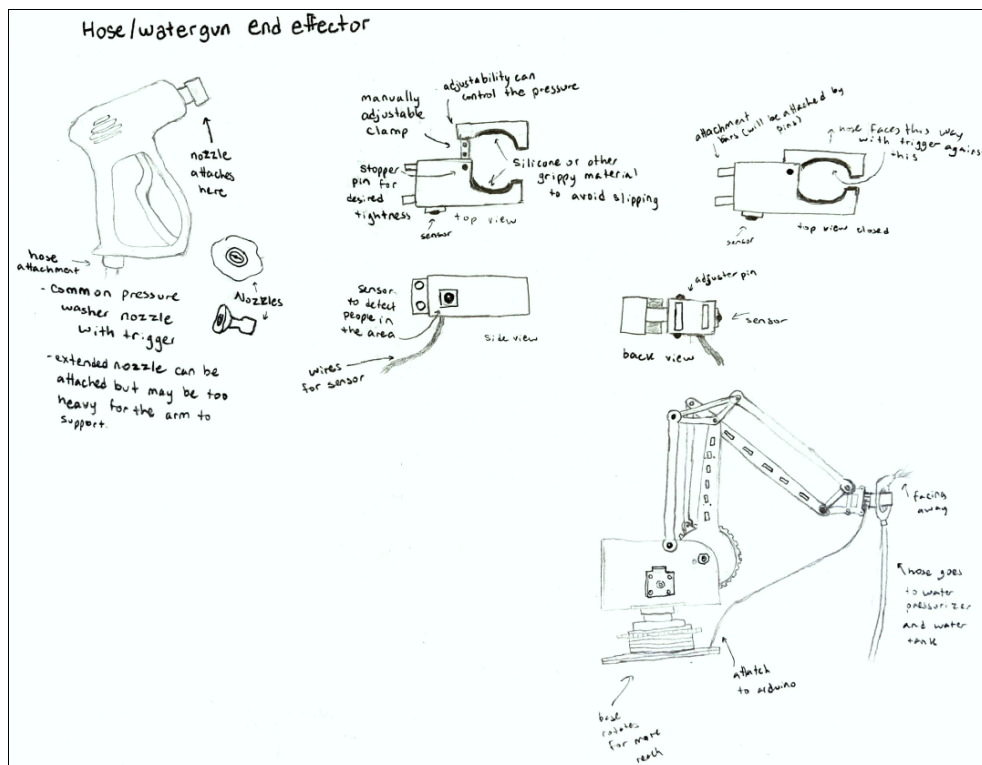 Hose/watergun end effector
nozzle
attaches
here
hose
attachment
Nozzles
- Common pressure
washer nozzle
with trigger
- extended nozzle can be
attached but may be too
heavy for the arm to
support.
manually
adjustable
clamp
adjustability can
control the pressure
stopper
pin for
desired
tightness
Silicone or other
grippy material
to avoid slipping
top view
sensor
attachment
bars (will be attached by
pins)
hose faces this way
with trigger against
this
top view closed
sensor
sensor
to detect
people in
the area
side view
wires
for sensor
adjuster pin
sensor
back view
facing
away
hose goes
to water
pressurizer
and water
tank
attatch
to arduino
base
rotates
for more
reach